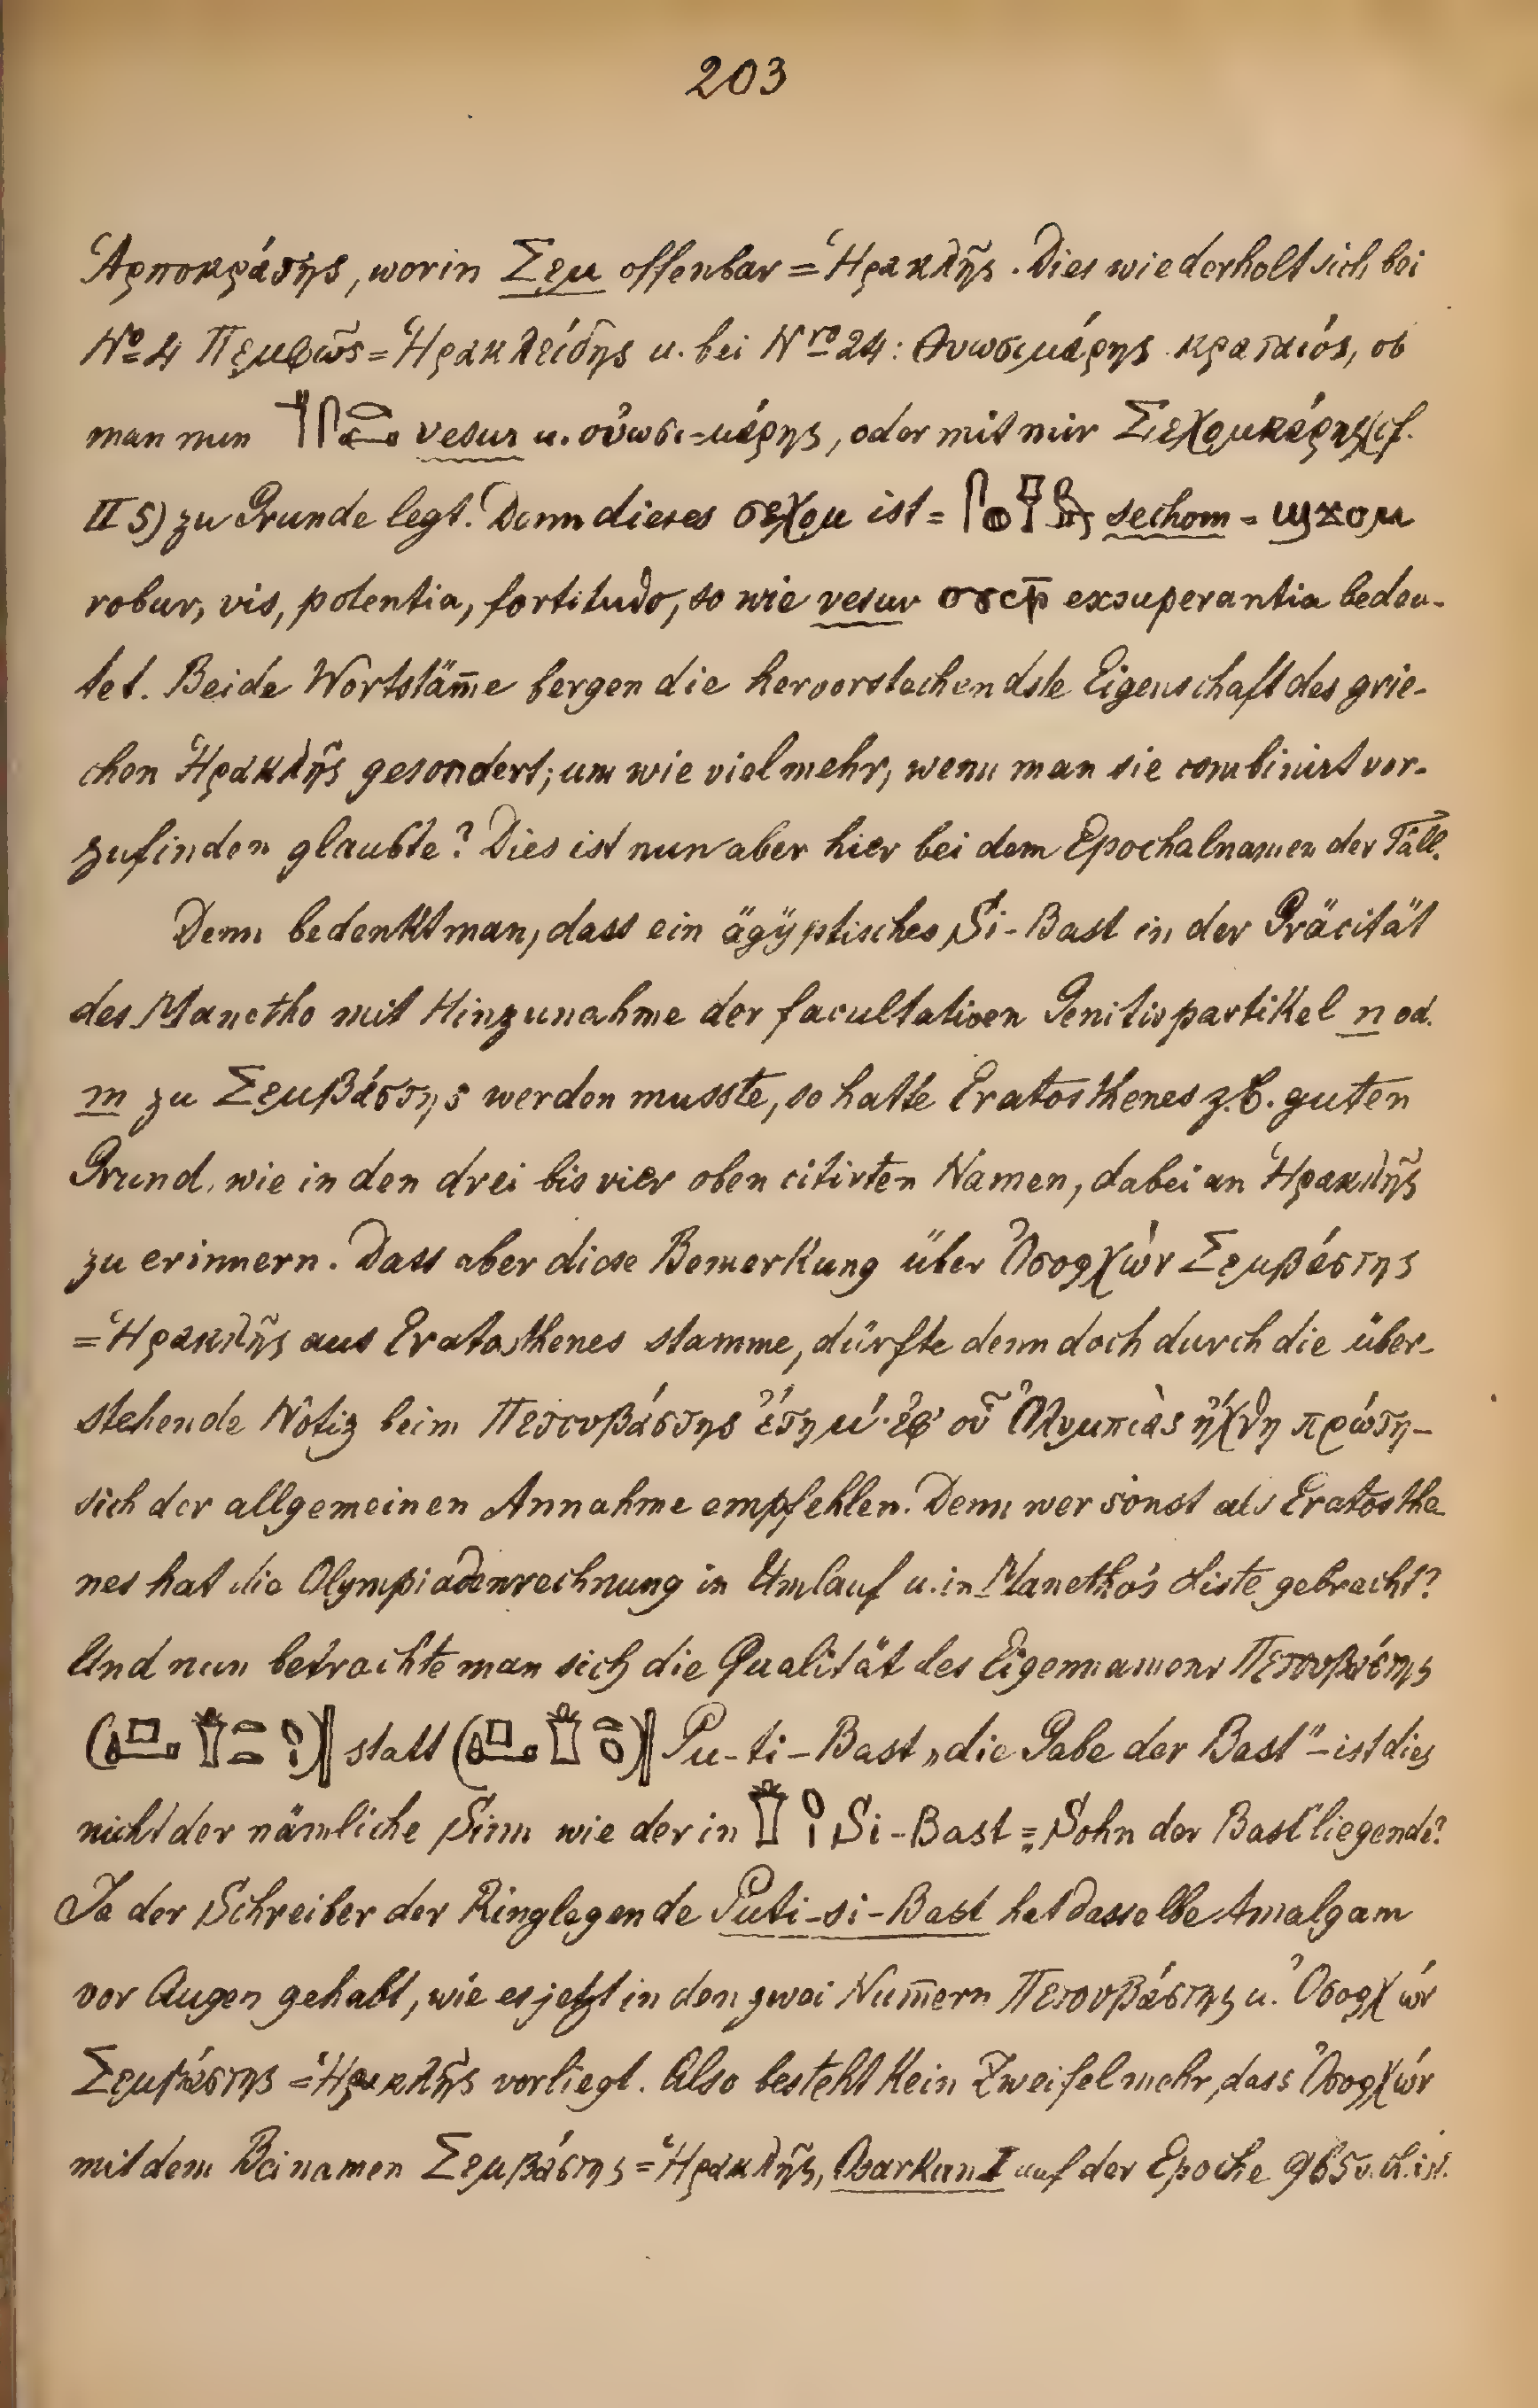 203
Ἁρποκράτης, worin Σεμ offenbar = Ἡρακλῆς. Dies wiederholt sich bei
No 4 Πεμφῶς = Ἡρακλείδης u. bei Nro 24: Θυωσιμάρης κραταιός, ob
man nun vesur u. οὐωσι-μάρης, oder mit mir Σεχεμκάρης (cf.
II 5) zu Grunde legt. Denn dieses σεχεμ ist = sechom = ϣϫⲟⲙ
robur, vis, potentia, fortitudo, so wie vesur ⲟⲩⲥⲣ̄ exsuperantia bedeu-
tet. Beide Wortstäm̄e bergen die hervorstechendste Eigenschaft des grie-
chen Ἡρακλῆς gesondert; um wie viel mehr, wenn man sie combinirt vor-
zufinden glaubte? Dies ist nun aber hier bei dem Epochalnamen der Fall.
Denn bedenkt man, dass ein ägyptisches Si-Bast in der Gräcität
des Manetho mit Hinzunahme der facultativen Genitivpartikel n od.
m zu Σεμβάστης werden musste, so hatte Eratosthenes z.B. guten
Grund, wie in den drei bis vier oben citirten Namen, dabei an Ἡρακλῆς
zu erinnern. Dass aber diese Bemerkung über Ὀσορχὼν Σεμβάστης
= Ἡρακλῆς aus Eratosthenes stamme, dürfte denn doch durch die über-
stehende Notiz beim Πετουβάστης ἔτη μ΄· ἐφ᾽ οὗ Ὀλυμπιὰς ἤχθη πρώτη –
sich der allgemeinen Annahme empfehlen. Denn wer sonst als Eratosthe
nes hat die Olympiadenrechnung in Umlauf u. in Manetho's Liste gebracht?
Und nun betrachte man sich die Qualität des Eigennamens Πετουβάστης
statt Pu-ti-Bast „die Gabe der Bast" – ist dies
nicht der nämliche Sinn wie der in Si-Bast = „Sohn der Bast" liegende?
Ja der Schreiber der Ringlegende Puti-si-Bast hat dasselbe Amalgam
vor Augen gehabt, wie es jetzt in den zwei Num̄ern Πετουβάστης u. Ὀσορχών
Σεμβάστης = Ἡρακλῆς vorliegt. Also besteht kein Zweifel mehr, dass Ὀσορχών
mit dem Beinamen Σεμβάστης = Ἡρακλῆς, Osarkan I auf der Epoche 965 v. Ch. ist.